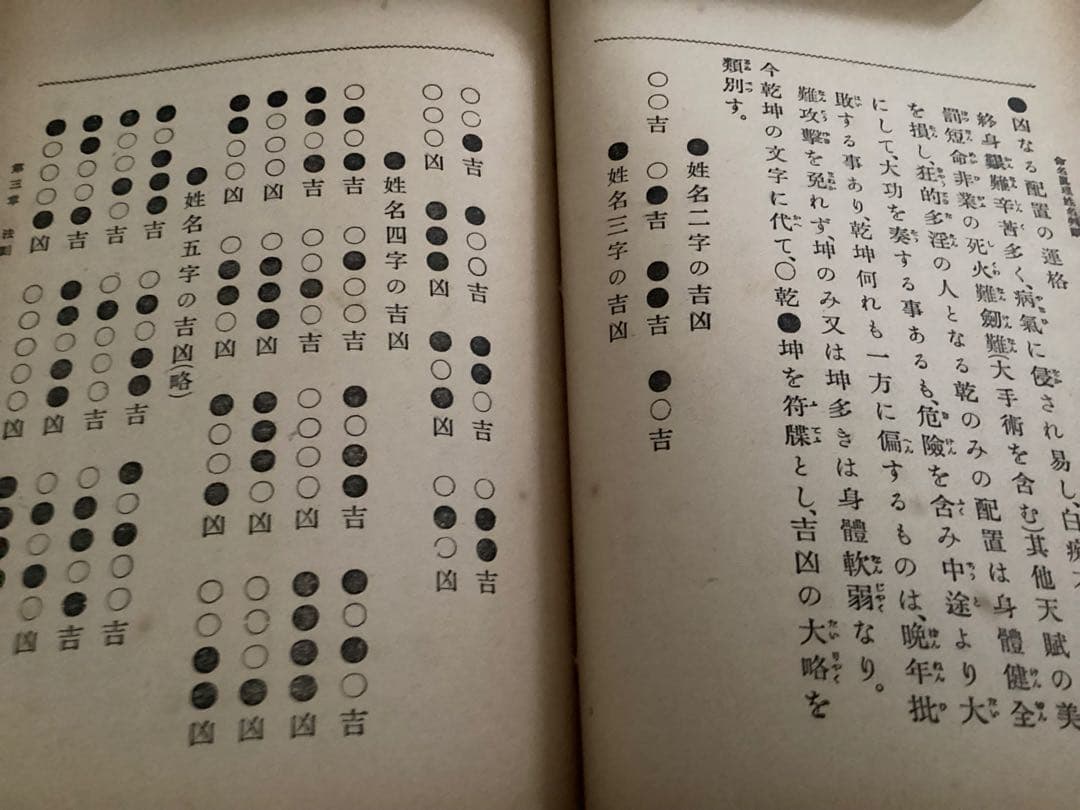 ●凶なる配置の運格
終身艱難辛苦多く、病氣に侵され易し、白痴
罰短命非業の死火難劔難(大手術を含む)其他天賦の美
を損し、狂的多淫の人となる乾のみの配置は身體健全
にして、大功を奏する事あるも、危險を含み中途より大
敗する事あり、乾坤何れも一方に偏するものは、晩年批
難攻擊を免れず、坤のみ又は坤多きは身體軟弱なり。
今乾坤の文字に代て、○乾●坤を符牒とし、吉凶の大略を
類別す。
●姓名二字の吉凶
○○吉 ○●吉 ●●吉 ●○吉
●姓名三字の吉凶
○○●吉 ●○○吉 ●●○吉 ○●●吉
○○○凶 ●●●凶 ●○●凶 ○●○凶
●姓名四字の吉凶
○●○●吉 ○●○○吉 ●○●●吉 ●○●○吉
●●○●吉 ○○●○吉 ○○○○凶 ●●●●凶
●○○○凶 ○●●●凶 ●●●○凶 ○○○●凶
●●○○凶 ○●●○凶 ●○○●凶 ○○●●凶
●姓名五字の吉凶(略)
●○●●●吉 ○●○●●吉 ●○●○○吉
●○○●○吉 ○●○○○吉 ○●●○●吉
●●○○●吉 ●●○●●凶 ○●○●○凶
●○○○●凶 ○○○○○凶
第三章